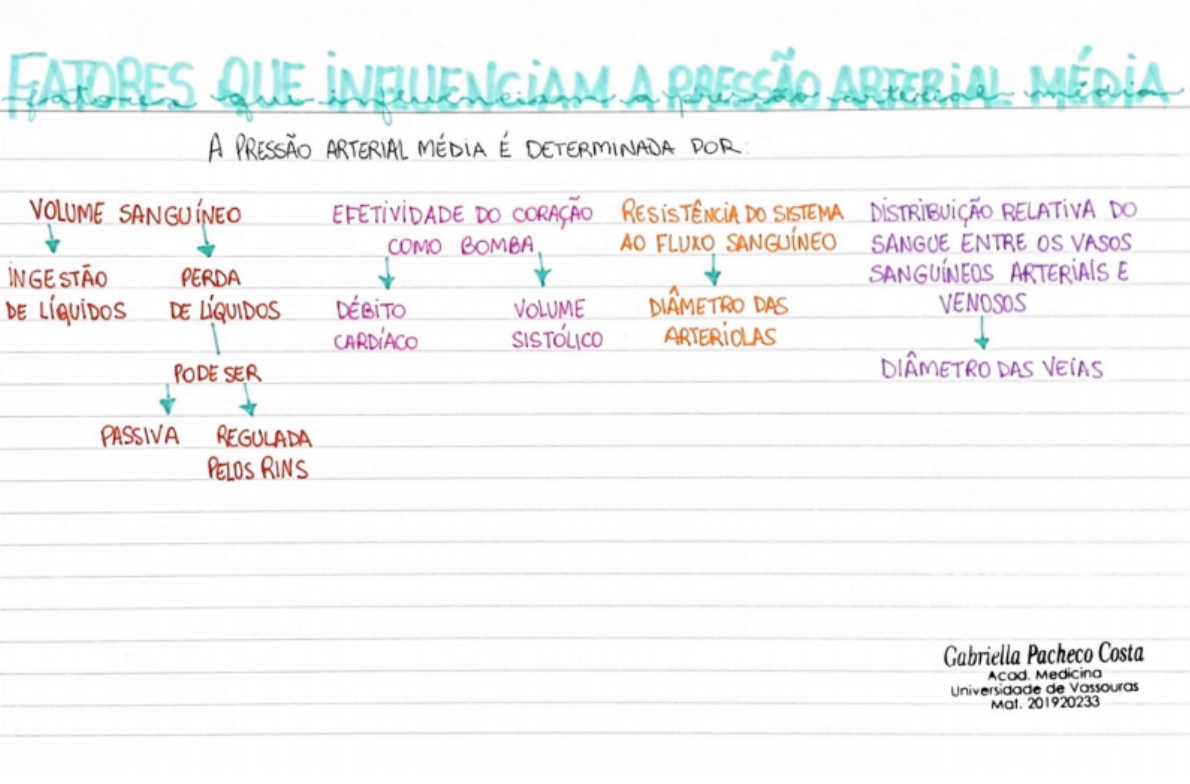 FATORES QUE INFLUENCIAM A PRESSÃO ARTERIAL MÉDIA
fatores que influenciam a pressão arterial média
A PRESSÃO ARTERIAL MÉDIA É DETERMINADA POR:
VOLUME SANGUÍNEO
INGESTÃO
DE LÍQUIDOS
PERDA
DE LÍQUIDOS
PODE SER
PASSIVA
REGULADA
PELOS RINS
EFETIVIDADE DO CORAÇÃO
COMO BOMBA
DÉBITO
CARDÍACO
VOLUME
SISTÓLICO
RESISTÊNCIA DO SISTEMA
AO FLUXO SANGUÍNEO
DIÂMETRO DAS
ARTERÍOLAS
DISTRIBUIÇÃO RELATIVA DO
SANGUE ENTRE OS VASOS
SANGUÍNEOS ARTERIAIS E
VENOSOS
DIÂMETRO DAS VEIAS
Gabriella Pacheco Costa
Acad. Medicina
Universidade de Vassouras
Mat. 201920233